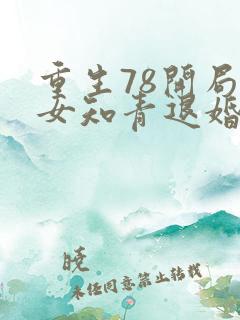 重生78开局
女知青退婚
晓
未经同意禁止转载